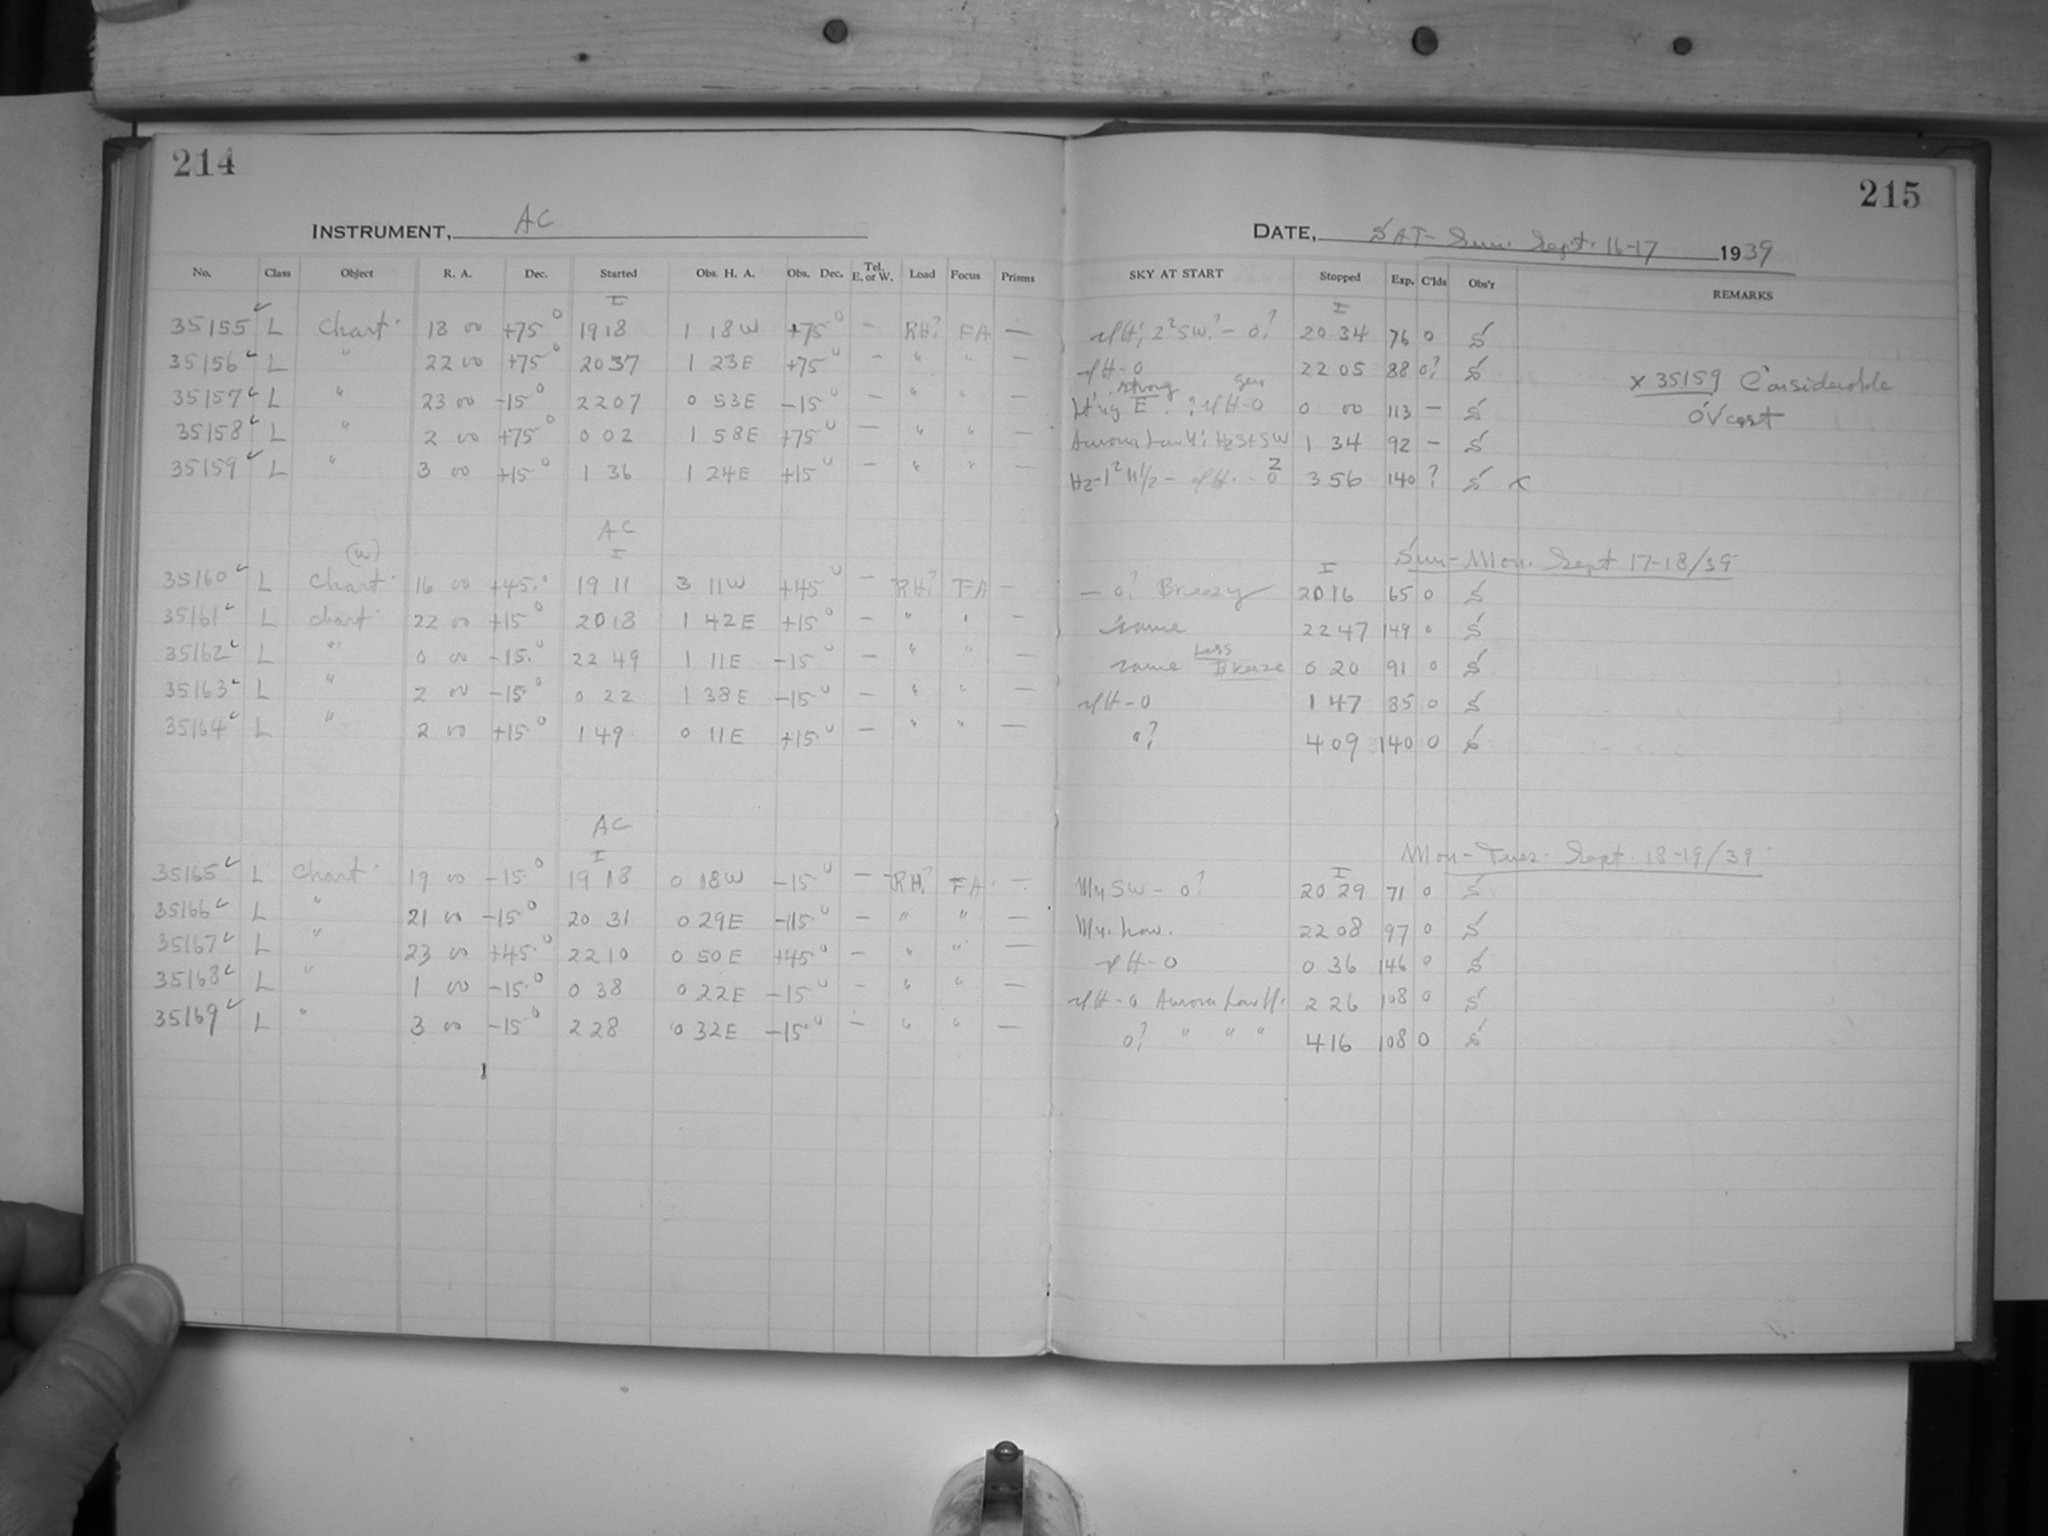 214
215
INSTRUMENT, AC
DATE, SAT- Sun. Sept. 16-17 1939
No. Class Object R. A. Dec. Started Obs. H. A. Obs. Dec. Tel. E. or W. Load Focus Prisms SKY AT START Stopped Exp. C'lds Obs'r REMARKS
I I
35155 ✓ L Chart 18 00 +75° 19 18 1 18W +75° — RH? FA — 20 34 76 0 S
35156 ✓ L " 22 00 +75° 20 37 1 23E +75° — " " — 22 05 88 0? S
x 35159 Considerable
strong
35157 ✓ L " 23 00 -15° 22 07 0 53E -15° — " " — E. 0 00 113 — S
OVcast
35158 ✓ L " 2 00 +75° 0 02 1 58E +75° — " " — Aurora Low N; Hz S+SW 1 34 92 — S
35159 ✓ L " 3 00 +15° 1 36 1 24E +15° — " " — 3 56 140 ? S x
AC
I
Sun-Mon. Sept 17-18/39
(W)
I
35160 ✓ L Chart 16 00 +45° 19 11 3 11W +45° — RH? FA — — 0? Breezy 20 16 65 0 S
35161 ✓ L chart 22 00 +15° 20 18 1 42E +15° — " " — same 22 47 149 0 S
35162 ✓ L " 0 00 -15° 22 49 1 11E -15° — " " — same Less Breeze 0 20 91 0 S
35163 ✓ L " 2 00 -15° 0 22 1 38E -15° — " " — 1 47 85 0 S
35164 ✓ L " 2 00 +15° 1 49 0 11E +15° — " " — 0? 4 09 140 0 S
AC
I
Mon-Tues. Sept. 18-19/39
I
35165 ✓ L Chart 19 00 -15° 19 18 0 18W -15° — RH? FA — My SW - 0? 20 29 71 0 S
35166 ✓ L " 21 00 -15° 20 31 0 29E -15° — " " — My. Low. 22 08 97 0 S
35167 ✓ L " 23 00 +45° 22 10 0 50E +45° — " " — 0 36 146 0 S
35168 ✓ L " 1 00 -15° 0 38 0 22E -15° — " " — Aurora Low N. 2 26 108 0 S
35169 ✓ L " 3 00 -15° 2 28 0 32E -15° — " " — 0? " " " 4 16 108 0 S